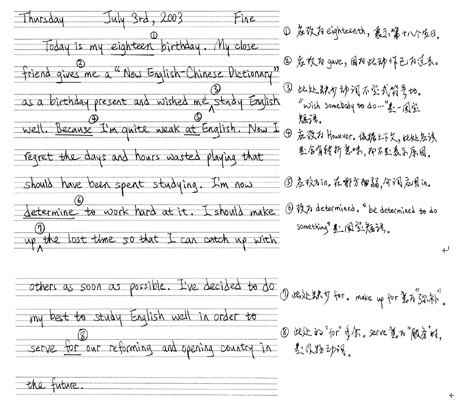 Thursday July 3rd, 2003 Fine
①
Today is my eighteen birthday. My close
②
friend gives me a "New English-Chinese Dictionary"
③
as a birthday present and wished me ^ study English
④ ⑤
well. Because I'm quite weak at English. Now I
regret the days and hours wasted playing that
should have been spent studying. I'm now
⑥
determine to work hard at it. I should make
⑦
up ^ the lost time so that I can catch up with
others as soon as possible. I've decided to do
my best to study English well in order to
⑧
serve for our reforming and opening country in
the future.
① 应改为eighteenth, 表示第十八个生日。
② 应改为gave, 因为此动作已为过去。
③ 此处缺少动词不定式符号to。
"wish somebody to do…"是一固定
短语。
④ 应改为However. 根据上下文, 此处应该
是含有转折意味, 而不是表示原因。
⑤ 应改为in. 在那方面弱, 介词应用in。
⑥ 改为determined. "be determined to do
something"是一固定短语。
⑦ 此处缺少for. make up for意为"弥补".
⑧ 此处的"for"多余。serve意为"服务"时,
是及物动词。